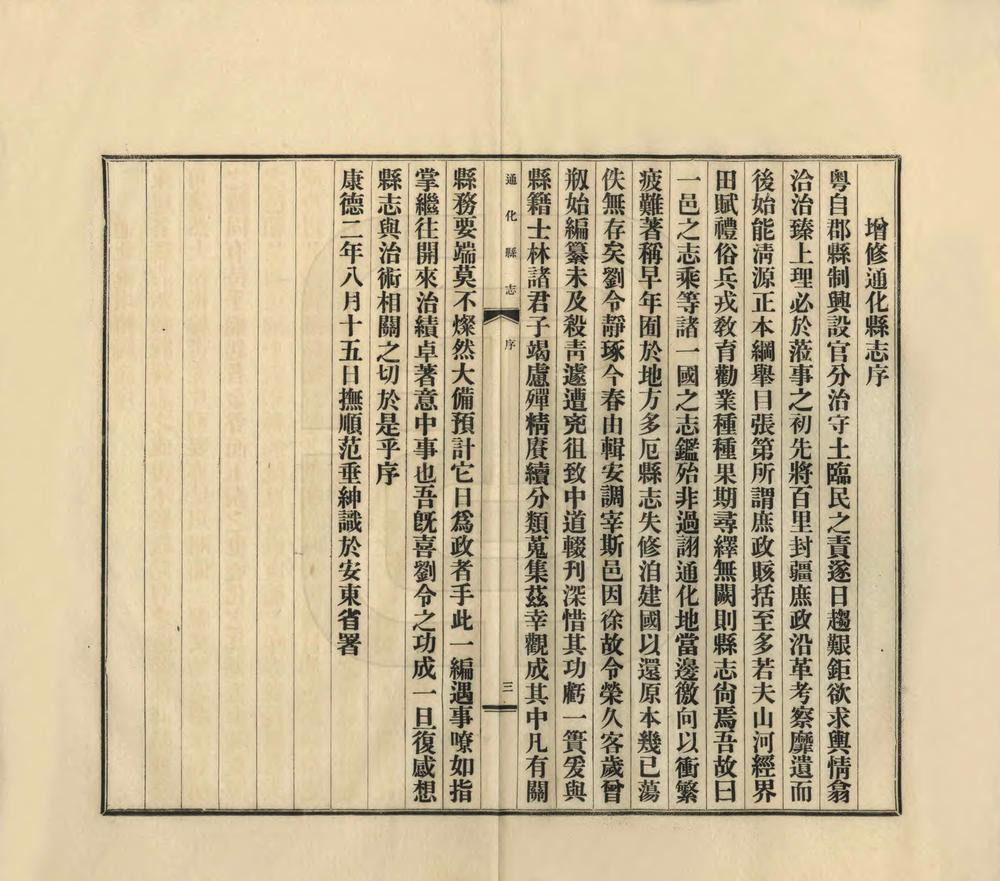 增修通化縣志序
粤自郡縣制興設官分治守土臨民之責遂日趨艱鉅欲求輿情翕
洽治臻上理必於蒞事之初先將百里封疆庶政沿革考察靡遺而
後始能清源正本綱舉目張第所謂庶政賅括至多若夫山河經界
田賦禮俗兵戎教育勸業種種果期尋繹無闕則縣志尙焉吾故曰
一邑之志乘等諸一國之志鑑殆非過詡通化地當邊徼向以衝繁
疲難著稱早年囿於地方多厄縣志失修洎建國以還原本幾已蕩
佚無存矣劉令靜琢今春由輯安調宰斯邑因徐故令榮久客歲曾
剏始編纂未及殺靑遽遭兇徂致中道輟刊深惜其功虧一簣爰與
縣籍士林諸君子竭慮殫精賡續分類蒐集茲幸觀成其中凡有關
通化縣志
序
三
縣務要端莫不燦然大備預計它日爲政者手此一編遇事瞭如指
掌繼往開來治績卓著意中事也吾旣喜劉令之功成一旦復感想
縣志與治術相關之切於是乎序
康德二年八月十五日撫順范垂紳識於安東省署